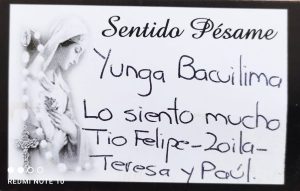 Sentido Pésame
Yunga Bacuilima
Lo siento mucho
Tio Felipe-Zoila-
Teresa y Paúl.
REDMI NOTE 10